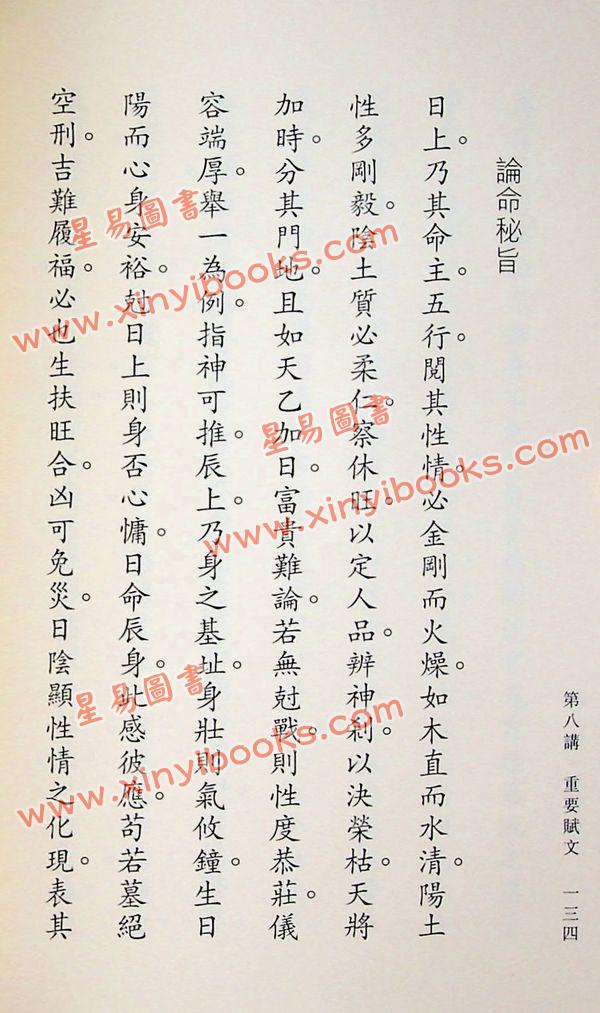 論命秘旨
日上。乃其命主。五行。閱其性情。必金剛而火燥。如木直而水清。陽土
性多剛毅。陰土質必柔仁。察休旺。以定人品。辨神剎。以決榮枯。天將
加時。分其門地。且如天乙加日。富貴難論。若無尅戰。則性度恭莊。儀
容端厚。舉一為例。指神可推。辰上。乃身之基址。身壯則氣攸鐘。生日
陽而心身安裕。尅日上則身否心慵。日命辰身。此感彼應。苟若墓絕
空刑。吉難履福。必也生扶旺合。凶可免災。日陰顯性情之化現。表其
第八講 重要賦文 一三四
星易圖書
www.xinyibooks.com
星易圖書
www.xinyibooks.com
星易圖書
www.xinyibooks.com